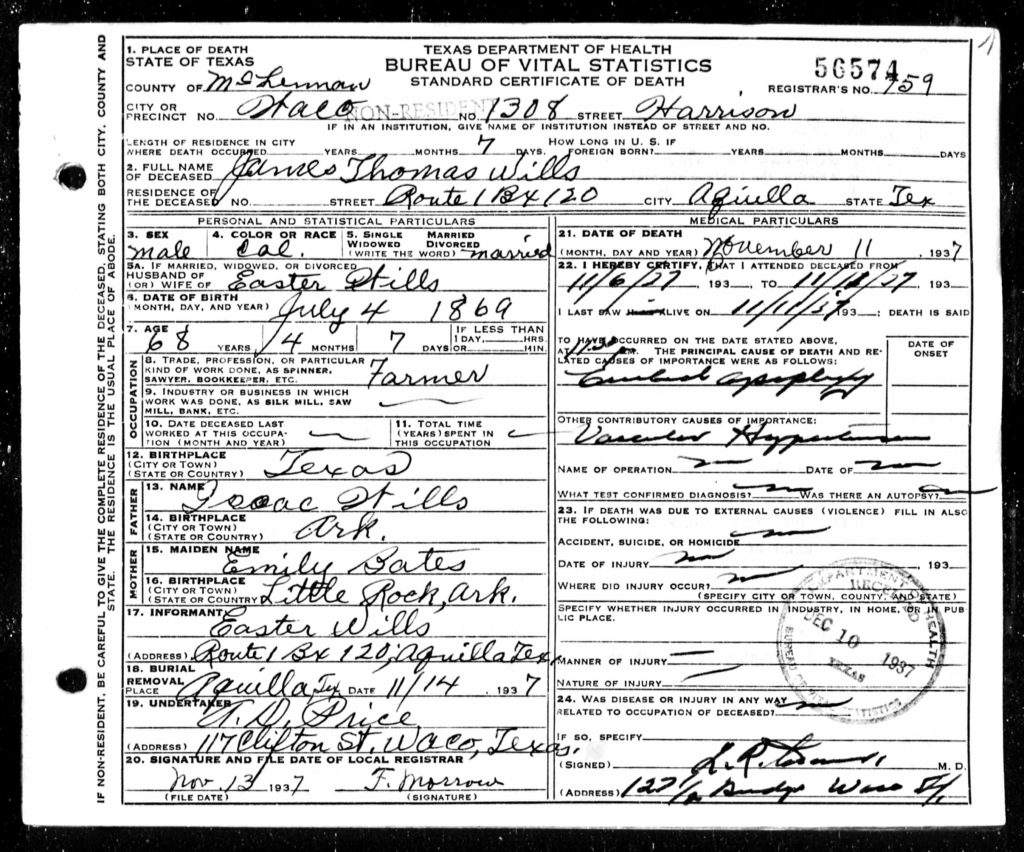 1. PLACE OF DEATH
STATE OF TEXAS
COUNTY OF McLennan
CITY OR PRECINCT NO. Waco NON-RESIDENT NO. 1308 STREET Harrison
TEXAS DEPARTMENT OF HEALTH
BUREAU OF VITAL STATISTICS
STANDARD CERTIFICATE OF DEATH
56574
REGISTRAR'S NO. 759
IF IN AN INSTITUTION, GIVE NAME OF INSTITUTION INSTEAD OF STREET AND NO.
LENGTH OF RESIDENCE IN CITY WHERE DEATH OCCURRED YEARS MONTHS 7 DAYS. HOW LONG IN U. S. IF FOREIGN BORN? YEARS MONTHS DAYS
2. FULL NAME OF DECEASED James Thomas Wills
RESIDENCE OF THE DECEASED NO. STREET Route 1 Bx 120 CITY Aquilla STATE Tex
PERSONAL AND STATISTICAL PARTICULARS
3. SEX male
4. COLOR OR RACE Col.
5. SINGLE MARRIED WIDOWED DIVORCED (WRITE THE WORD) married
5A. IF MARRIED, WIDOWED, OR DIVORCED
HUSBAND OF (OR) WIFE OF Easter Wills
6. DATE OF BIRTH (MONTH, DAY, AND YEAR) July 4 1869
7. AGE 68 YEARS 4 MONTHS 7 DAYS IF LESS THAN 1 DAY, HRS. OR MIN.
OCCUPATION
8. TRADE, PROFESSION, OR PARTICULAR KIND OF WORK DONE, AS SPINNER, SAWYER, BOOKKEEPER, ETC. Farmer
9. INDUSTRY OR BUSINESS IN WHICH WORK WAS DONE, AS SILK MILL, SAW MILL, BANK, ETC.
10. DATE DECEASED LAST WORKED AT THIS OCCUPATION (MONTH AND YEAR)
11. TOTAL TIME (YEARS) SPENT IN THIS OCCUPATION
12. BIRTHPLACE (CITY OR TOWN) (STATE OR COUNTRY) Texas
FATHER
13. NAME Isaac Wills
14. BIRTHPLACE (CITY OR TOWN) (STATE OR COUNTRY) Ark.
MOTHER
15. MAIDEN NAME Emily Bates
16. BIRTHPLACE (CITY OR TOWN) (STATE OR COUNTRY) Little Rock, Ark.
17. INFORMANT Easter Wills
(ADDRESS) Route 1 Bx 120, Aquilla Tex
18. BURIAL REMOVAL PLACE Aquilla, Tx DATE 11/14, 1937
19. UNDERTAKER A. D. Price
(ADDRESS) 117 Clifton St. Waco, Texas.
20. SIGNATURE AND FILE DATE OF LOCAL REGISTRAR
Nov. 13 1937 F. Morrow
(FILE DATE) (SIGNATURE)
MEDICAL PARTICULARS
21. DATE OF DEATH (MONTH, DAY AND YEAR) November 11, 1937
22. I HEREBY CERTIFY, THAT I ATTENDED DECEASED FROM
193 , TO , 193
I LAST SAW ALIVE ON 11/11/37 193 ; DEATH IS SAID
TO HAVE OCCURRED ON THE DATE STATED ABOVE,
AT M. THE PRINCIPAL CAUSE OF DEATH AND RELATED CAUSES OF IMPORTANCE WERE AS FOLLOWS:
DATE OF ONSET
apoplexy
OTHER CONTRIBUTORY CAUSES OF IMPORTANCE:
Vascular Hypertension
NAME OF OPERATION DATE OF
WHAT TEST CONFIRMED DIAGNOSIS? WAS THERE AN AUTOPSY?
23. IF DEATH WAS DUE TO EXTERNAL CAUSES (VIOLENCE) FILL IN ALSO THE FOLLOWING:
ACCIDENT, SUICIDE, OR HOMICIDE
DATE OF INJURY , 193
WHERE DID INJURY OCCUR?
(SPECIFY CITY OR TOWN, COUNTY, AND STATE)
SPECIFY WHETHER INJURY OCCURRED IN INDUSTRY, IN HOME, OR IN PUBLIC PLACE.
MANNER OF INJURY
NATURE OF INJURY
24. WAS DISEASE OR INJURY IN ANY WAY RELATED TO OCCUPATION OF DECEASED?
IF SO, SPECIFY
(SIGNED) L. R. M. D.
(ADDRESS) Bridge Waco
DEPARTMENT OF HEALTH
RECEIVED
DEC 10 1937
TEXAS
BUREAU OF VITAL STATISTICS
IF NON-RESIDENT, BE CAREFUL TO GIVE THE COMPLETE RESIDENCE OF THE DECEASED, STATING BOTH CITY, COUNTY AND STATE. THE RESIDENCE IS THE USUAL PLACE OF ABODE.